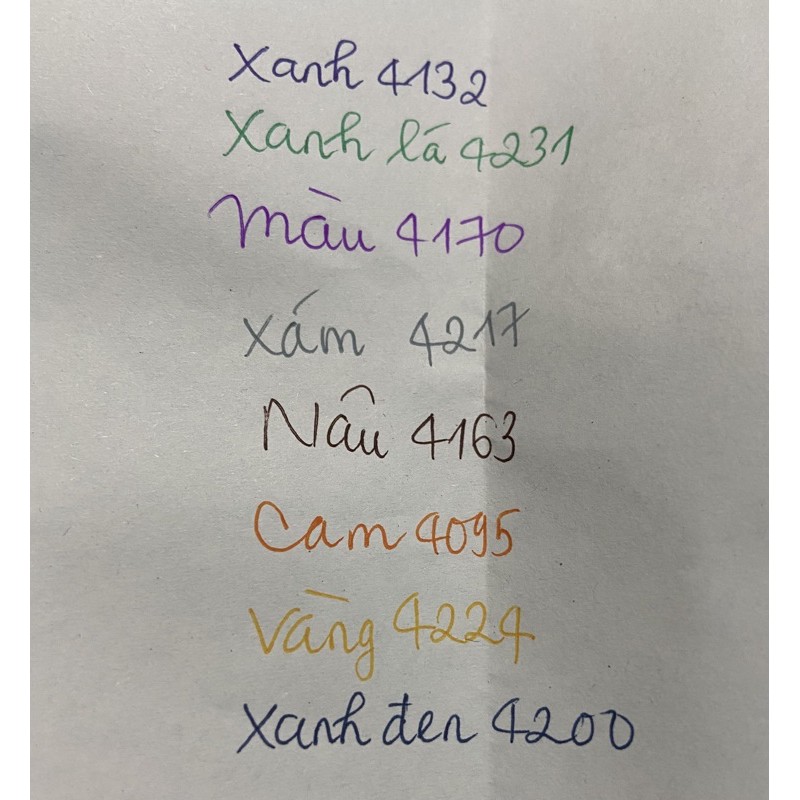 Xanh 4132
Xanh lá 4231
Màu 4170
Xám 4217
Nâu 4163
Cam 4095
Vàng 4224
Xanh đen 4200